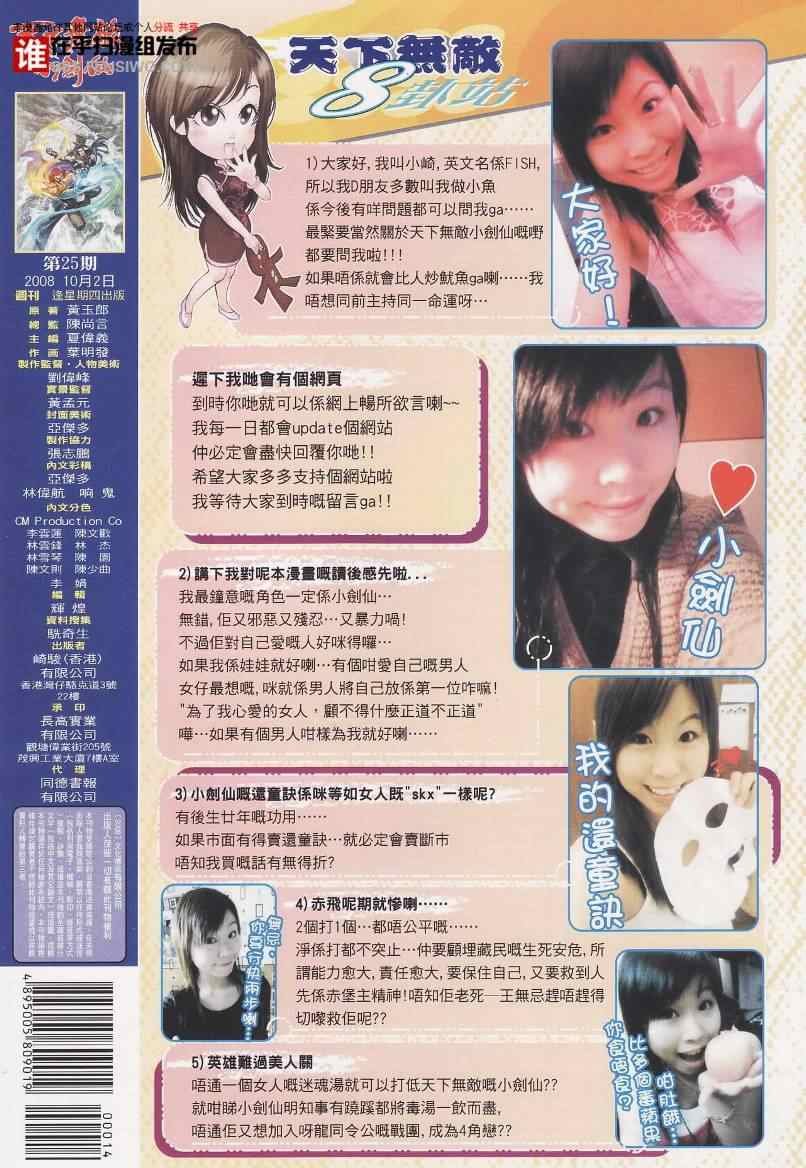 分流 共享
谁在平扫漫组发布
天下無敵
8卦站
第25期
2008 10月2日
週刊 逢星期四出版
原著 黃玉郎
總監 陳尚言
主編 夏偉義
作画 葉明發
製作監督·人物美術
劉偉峰
實景監督
黃孟元
封面美術
亞傑多
製作協力
張志鵬
內文彩稿
亞傑多
林偉航 响鬼
內文分色
CM Production Co
李雲蓮 陳文歡
林雲鋒 林杰
林雪琴 陳園
陳文則 陳少曲
李娟
編輯
輝煌
資料搜集
駪奇生
出版者
崎駿(香港)
有限公司
香港灣仔駱克道3號
22樓
承印
長高實業
有限公司
觀塘偉業街205號
茂興工業大廈7樓A室
代理
同德書報
有限公司
4895005809019
00014
1)大家好,我叫小崎,英文名係FISH,
所以我D朋友多數叫我做小魚
係今後有咩問題都可以問我ga……
最緊要當然關於天下無敵小劍仙嘅嘢
都要問我啦!!!
如果唔係就會比人炒魷魚ga喇……我
唔想同前主持同一命運呀…
大家好!
遲下我哋會有個網頁
到時你哋就可以係網上暢所欲言喇~~
我每一日都會update個網站
仲必定會盡快回覆你哋!!
希望大家多多支持個網站啦
我等待大家到時嘅留言ga!!
小劍仙
2)講下我對呢本漫畫嘅讀後感先啦...
我最鐘意嘅角色一定係小劍仙…
無錯,佢又邪惡又殘忍…又暴力喎!
不過佢對自己愛嘅人好咪得囉…
如果我係娃娃就好喇…有個咁愛自己嘅男人
女仔最想嘅,咪就係男人將自己放係第一位咋嘛!
"為了我心愛的女人，顧不得什麼正道不正道"
嘩…如果有個男人咁樣為我就好喇……
我的還童訣
3)小劍仙嘅還童訣係咪等如女人既"skx"一樣呢?
有後生廿年嘅功用……
如果市面有得賣還童訣…就必定會賣斷市
唔知我買嘅話有無得折?
4)赤飛呢期就慘喇……
2個打1個…都唔公平嘅……
淨係打都不突止…仲要顧埋藏民嘅生死安危,所
謂能力愈大,責任愈大,要保住自己,又要救到人
先係赤堡主精神!唔知佢老死一王無忌趕唔趕得
切嚟救佢呢??
無忌,
你要行快兩步喇…
5)英雄難過美人關
唔通一個女人嘅迷魂湯就可以打低天下無敵嘅小劍仙??
就咁睇小劍仙明知事有蹺蹊都將毒湯一飲而盡,
唔通佢又想加入呀龍同令公嘅戰團,成為4角戀??
咁肚餓…
比多個番蘋果
你食唔食?